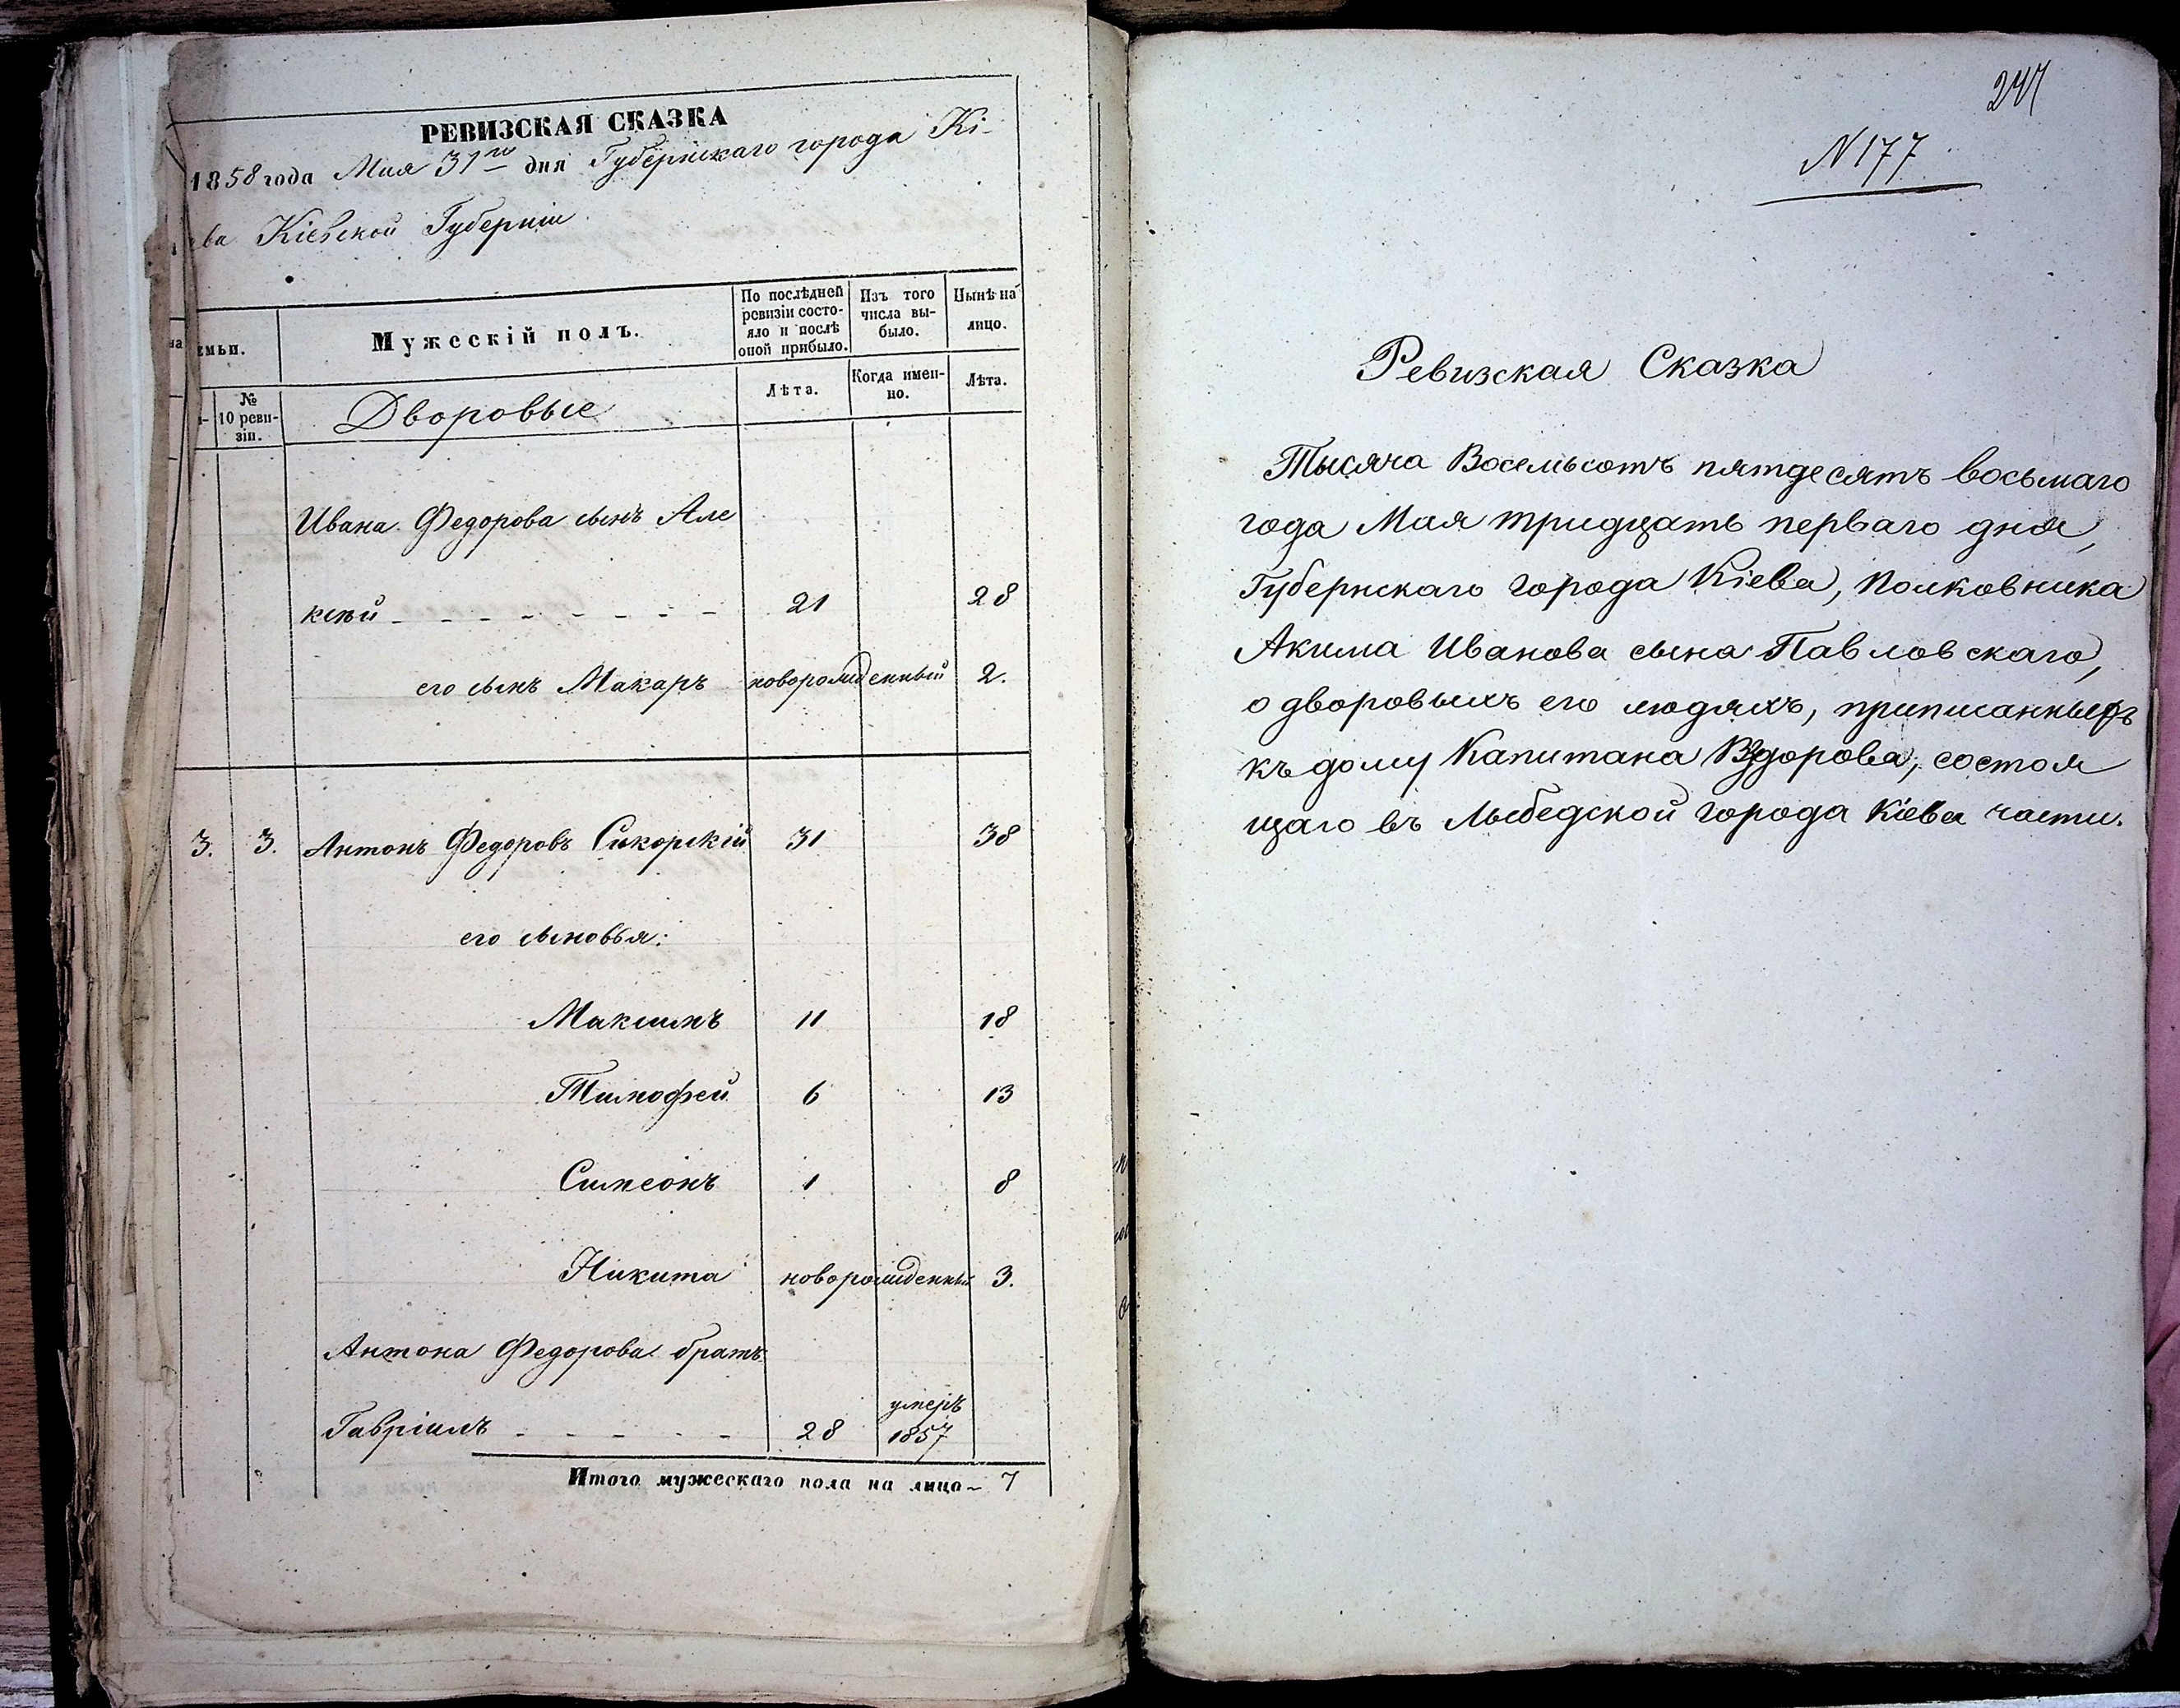 РЕВИЗСКАЯ СКАЗКА
1858 года Мая 31го дня Губернскаго города Кі-
ева Кіевской Губерніи
емьи.
Мужескій полъ.
По послѣдней ревизіи состо-
яло и послѣ
оной прибыло.
Изъ того
числа вы-
было.
Нынѣ на
лицо.
№
10 реви-
зіи.
Дворовые
Лѣта.
Когда имен-
но.
Лѣта.
Ивана Федорова сынъ Але
ксѣй - - - - - - - - 21 28
его сынъ Макаръ новорожденный 2.
3. 3. Антонъ Федоровъ Сикорскій 31 38
его сыновья:
Максимъ 11 18
Тимофей 6 13
Симеонъ 1 8
Никита новорожденный 3.
Антона Федорова братъ
Гавріилъ - - - - - 28 умеръ
1857
Итого мужескаго пола на лицо - 7
247
N 177
Ревизская Сказка
Тысяча Восемьсотъ пятдесятъ восьмаго
года Мая тридцать перваго дня,
Губернскаго города Кіева, Полковника
Акима Иванова сына Павловскаго,
о дворовыхъ его людяхъ, приписанныхъ
къ дому Капитана Вздорова, состоя
щаго въ Лыбедской города Кіева части.